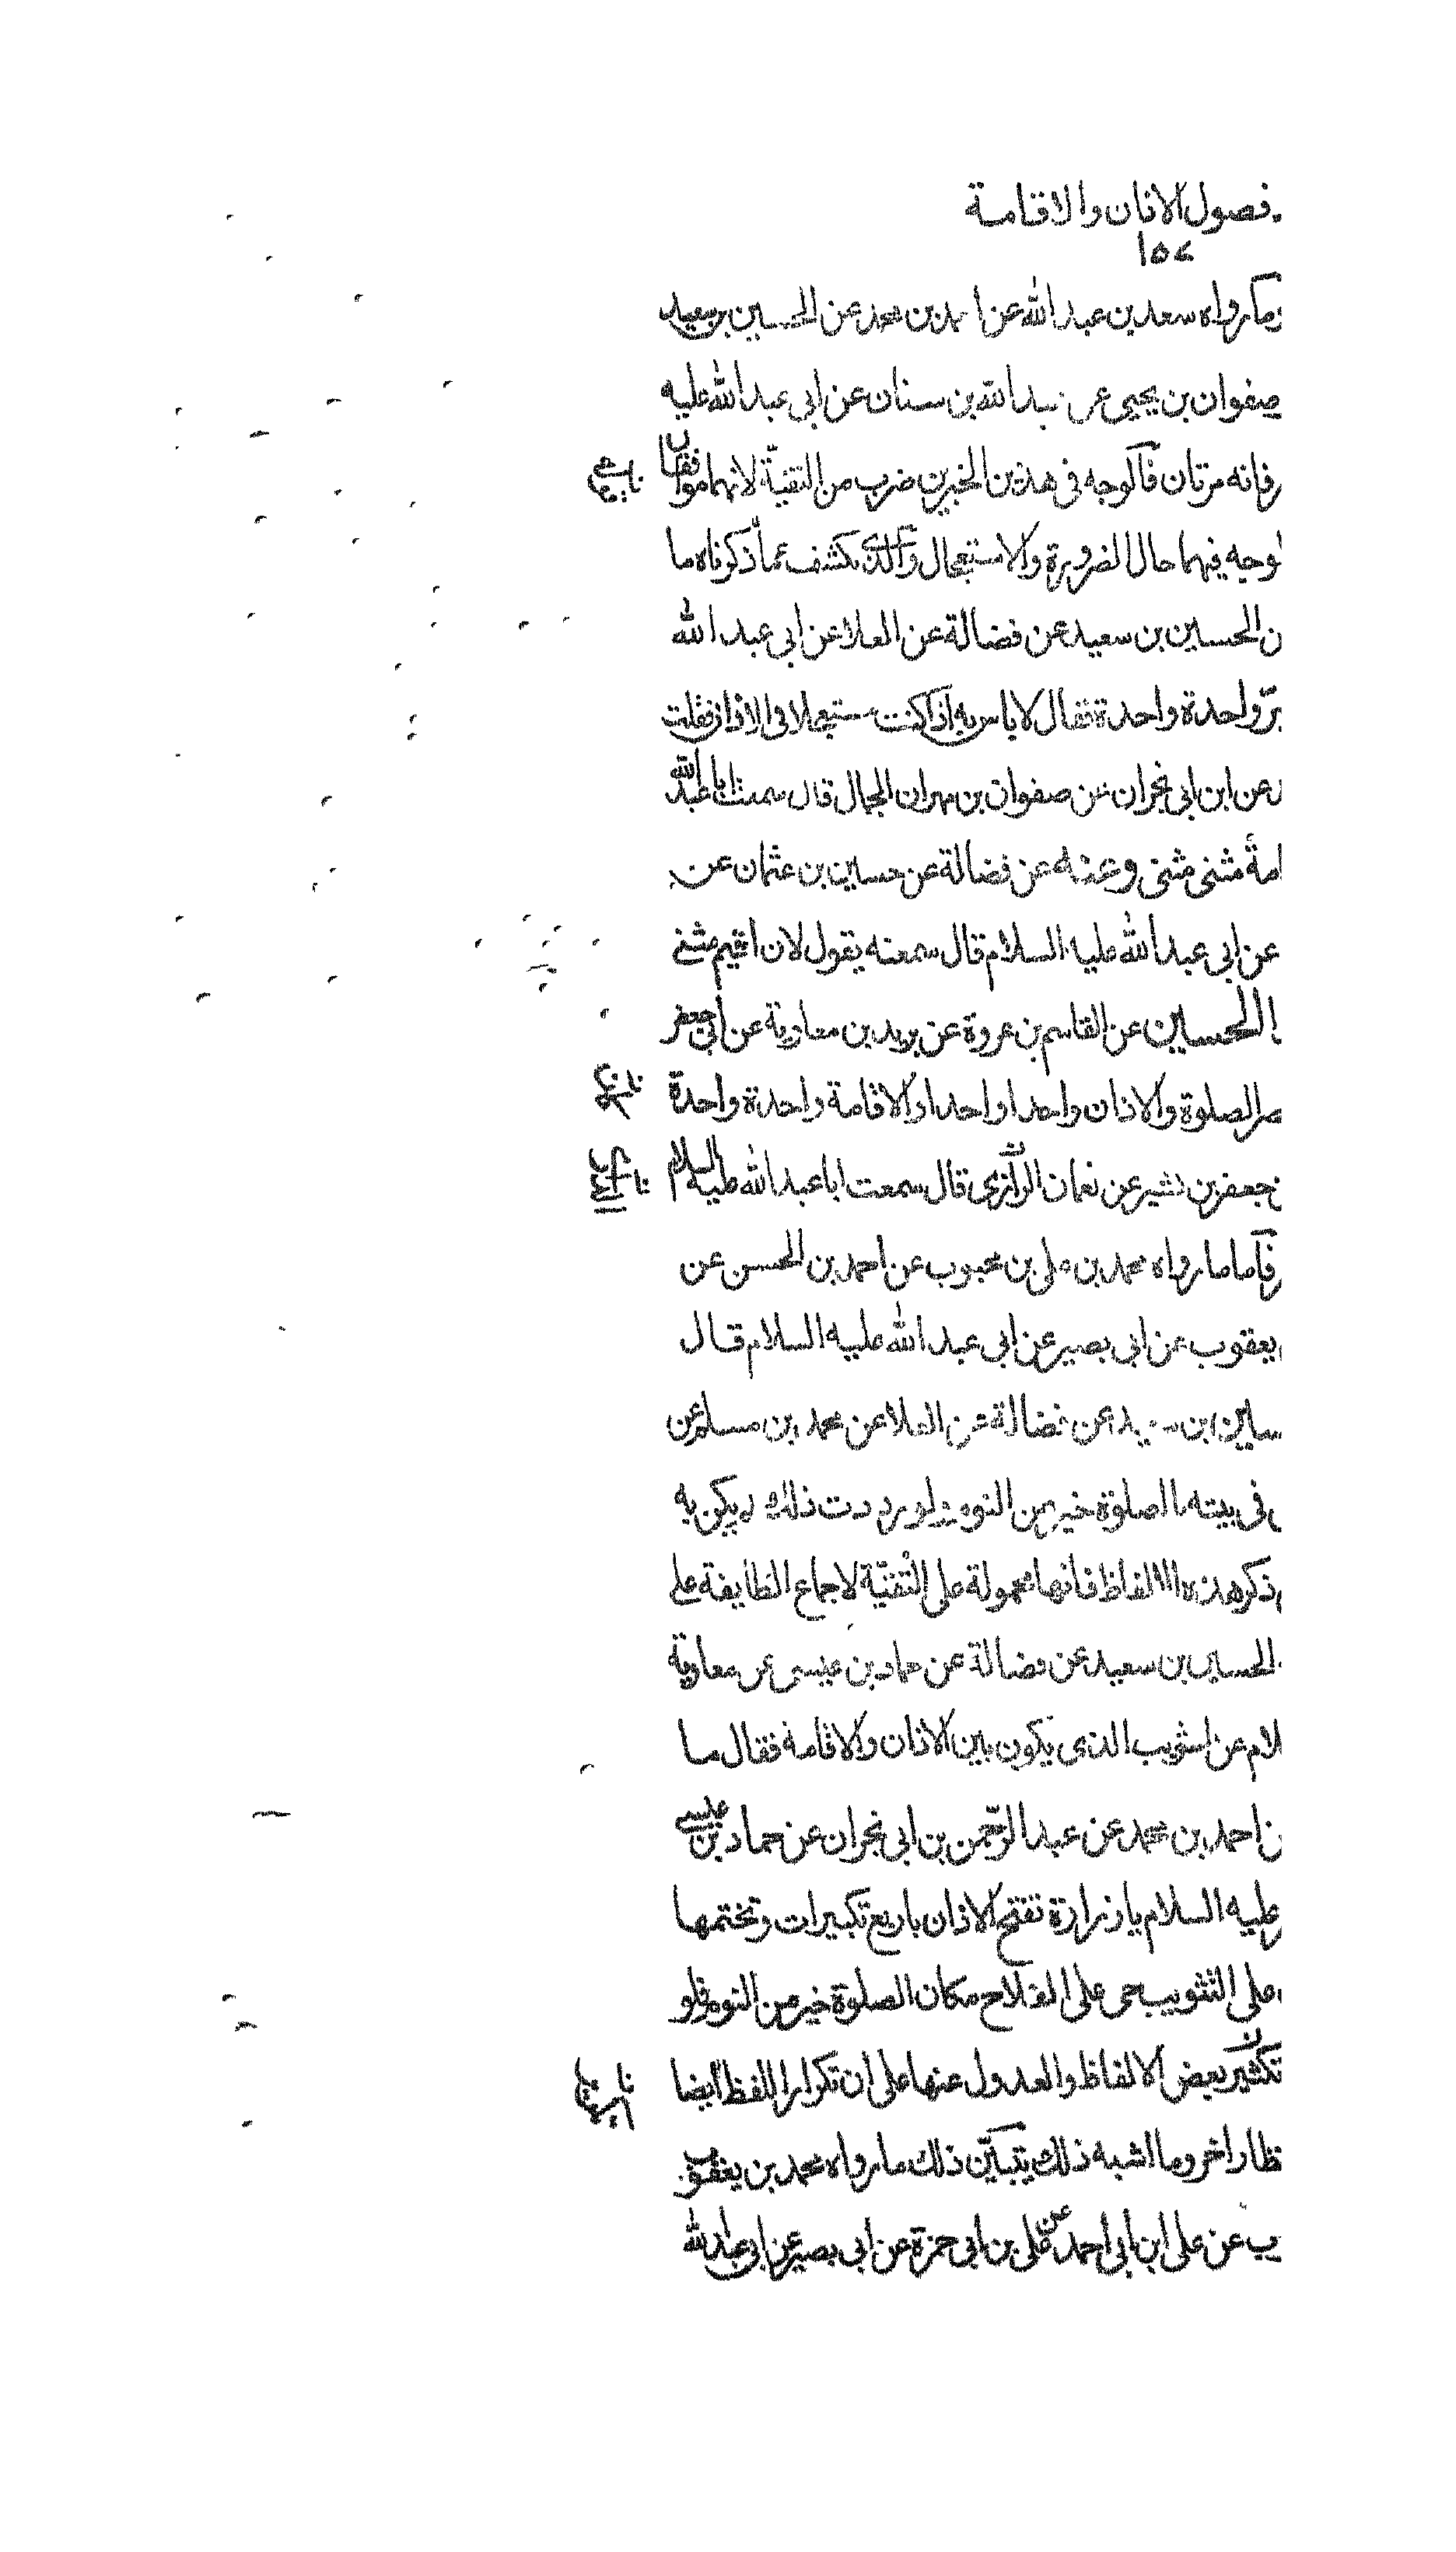 فصول الاذان والاقامة
١٥٧
وما رواه سعد بن عبد الله عن احمد بن محمد عن الحسين بن سعيد
صفوان بن يحيى عن عبد الله بن سنان عن ابى عبد الله عليه
فانه مرتان فالوجه فى هذين الخبرين ضرب من التقية لانهما موافقان
لوجه فيهما حال الضرورة والاستعجال والذى يكشف عما ذكرناه ما
ن الحسين بن سعيد عن فضالة عن العلا عن ابى عبد الله
بر واحدة واحدة فقال لا باس به اذا كنت مستعجلا فى الاذان فقلت
عن ابن ابى نجران عن صفوان بن مهران الجمال قال سمعت ابا عبد الله
امة مثنى مثنى وعنه عن فضالة عن حسين بن عثمان عن
عن ابى عبد الله عليه السلام قال سمعته يقول لان اقيم مثنى
الحسين عن القاسم بن عروة عن بريد بن معاوية عن ابى جعفر
صر الصلوة والاذان واحدا واحدا والاقامة واحدة واحدة
جعفر بن بشير عن نعمان الرازى قال سمعت ابا عبد الله عليه السلام
فاما ما رواه محمد بن على بن محبوب عن احمد بن الحسن عن
يعقوب عن ابى بصير عن ابى عبد الله عليه السلام قال
سين بن سعيد عن فضالة عن العلا عن محمد بن مسلم عن
فى بيته بالصلوة خير من النوم ولو رددت ذلك لم يكن به
ذكر هذه الالفاظ فانها محمولة على التقية لاجماع الطايفة على
الحسين بن سعيد عن فضالة عن حماد بن عيسى عن معاوية
لام عن التثويب الذى يكون بين الاذان والاقامة فقال ما
ن احمد بن محمد عن عبد الرحمن بن ابى نجران عن حماد بن عيسى
عليه السلام يا زرارة تفتتح الاذان باربع تكبيرات وتختمها
على التثويب حى على الفلاح مكان الصلوة خير من النوم فلو
تكثير بعض الالفاظ والعدول عنها على ان تكرار اللفظ ايضا
ظا راخر وما اشبه ذلك يتبين ذلك ما رواه محمد بن يعقوب
يب عن على ابن ابى احمد عن على بن ابى حمزة عن ابى بصير عن ابى عبد الله